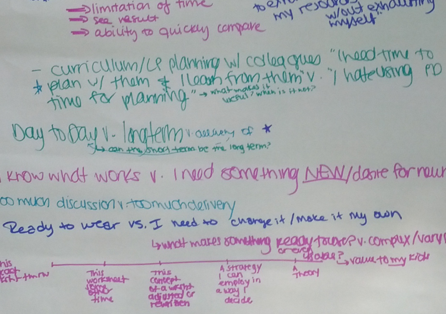 ⇒ limitation of time
⇒ see result
⇒ ability to quickly compare
my resources
w/out exhausting
myself"
- curriculum/LP planning w/ colleagues "I need time to
* plan w/ them & I learn from them" v. "I hate using PD
time for planning" → what makes it
useful? when is it not?
Day to Day v. longterm v. delivery of *
↳ can the short term be for long term?
I know what works v. I need something NEW/desire for new
too much discussion v. too much delivery
Ready to wear vs. I need to change it/make it my own
↳ what makes something ready to use? v. complex/vary
→ value to my kids
This
worksheet
time
This
concept
adjusted or
rewritten
A strategy
I can
employ in
a way I
decide
A
Theory